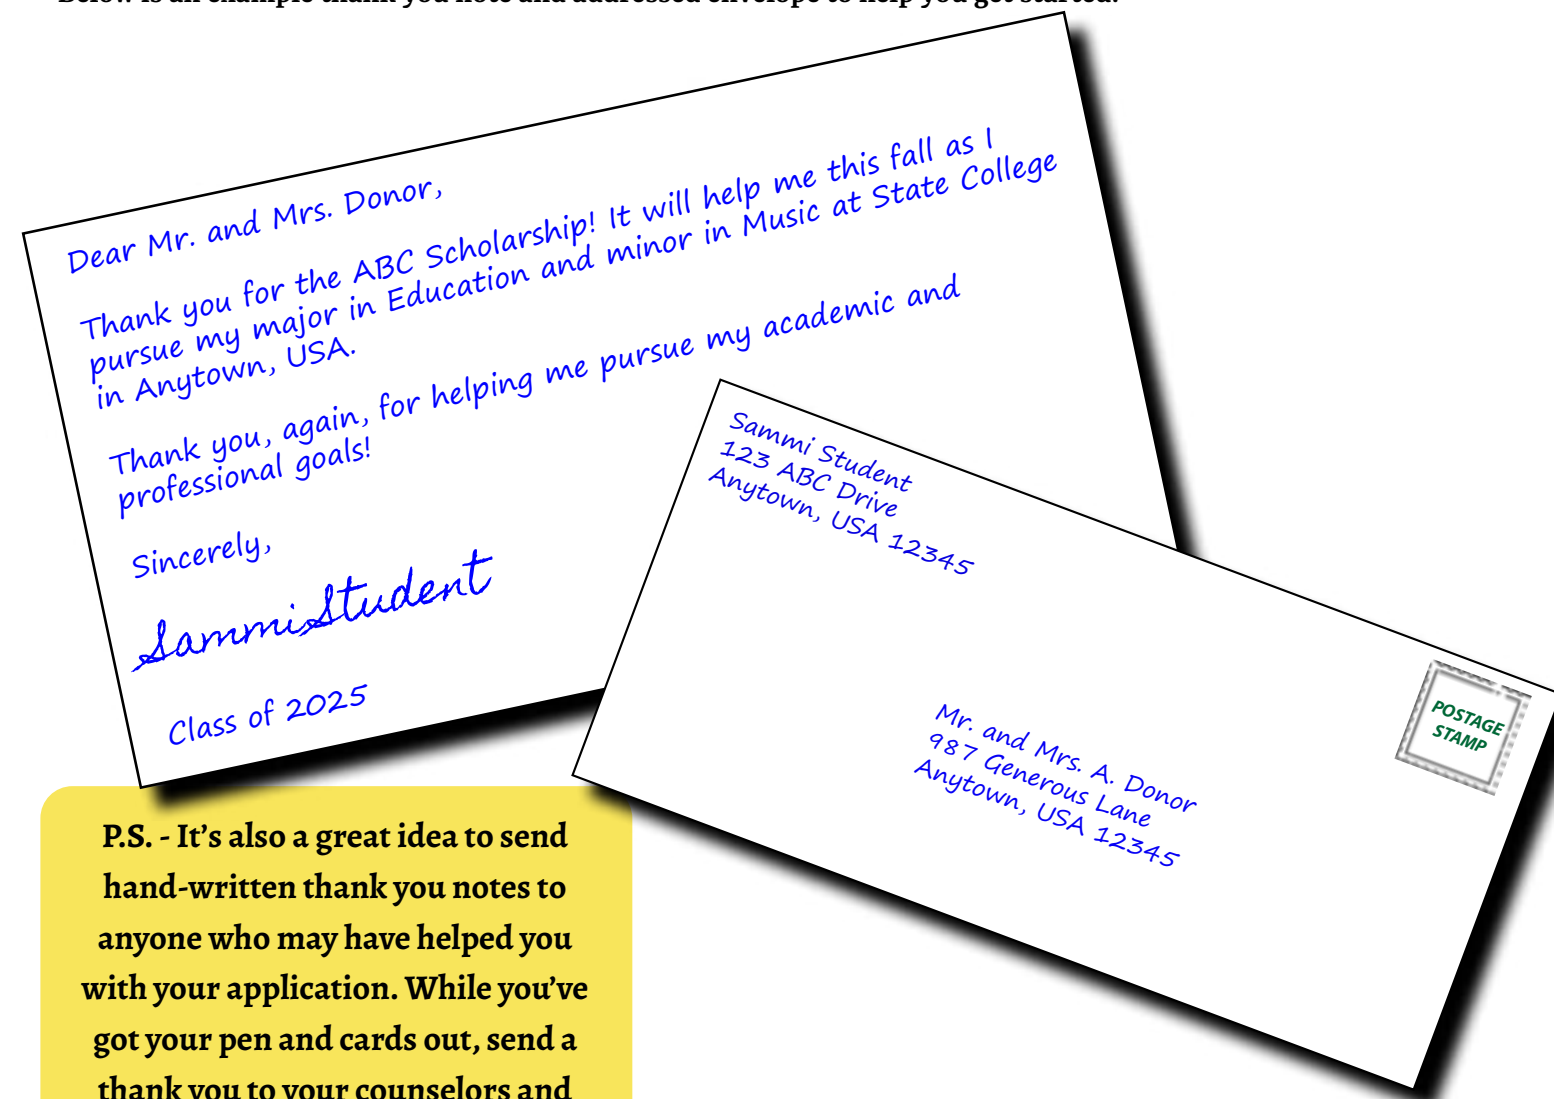 Below is an example thank you note and addressed envelope to help you get started.
Dear Mr. and Mrs. Donor,
Thank you for the ABC Scholarship! It will help me this fall as I
pursue my major in Education and minor in Music at State College
in Anytown, USA.
Thank you, again, for helping me pursue my academic and
professional goals!
Sincerely,
Sammi Student
Class of 2025
Sammi Student
123 ABC Drive
Anytown, USA 12345
POSTAGE
STAMP
Mr. and Mrs. A. Donor
987 Generous Lane
Anytown, USA 12345
P.S. - It’s also a great idea to send
hand-written thank you notes to
anyone who may have helped you
with your application. While you’ve
got your pen and cards out, send a
thank you to your counselors and